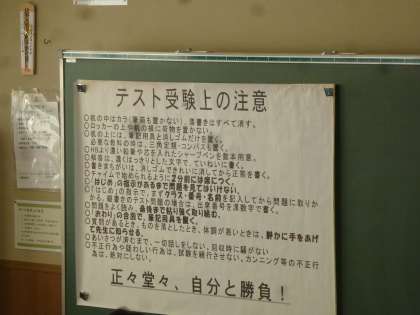 テスト受験上の注意
○机の中はカラ(筆箱も置かない)、落書きはすべて消す。
○ロッカーの上や机の横に荷物を置かない。
○机の上には、筆記用具と消しゴムだけを置く。
必要な教科の時は、三角定規・コンパスも置く。
○HBより濃い鉛筆や芯を入れたシャープペンを数本用意。
○解答は、濃くはっきりとした文字で、ていねいに書く。
○書きまちがいは、消しゴムできれいに消してから正答を書く。
○チャイムで始められるように2分前には席につく。
○「はじめ」の指示があるまで問題を見てはいけない。
○「はじめ」の指示で、まずクラス・番号・名前を記入してから問題に取りか
○問題をよく読み、最後まで粘り強く取り組む。
○「おわり」の合図で、筆記用具を置く。
○質問があるとき、ものを落としたとき、体調が悪いときは、静かに手をあげ
て先生に知らせる。
○あいさつが済むまで、一切話をしない。回収時に騒がない
○不正行為や疑わしい行為は、試験を続行させない。カンニング等の不正行
為は、絶対にしない。
正々堂々、自分と勝負！